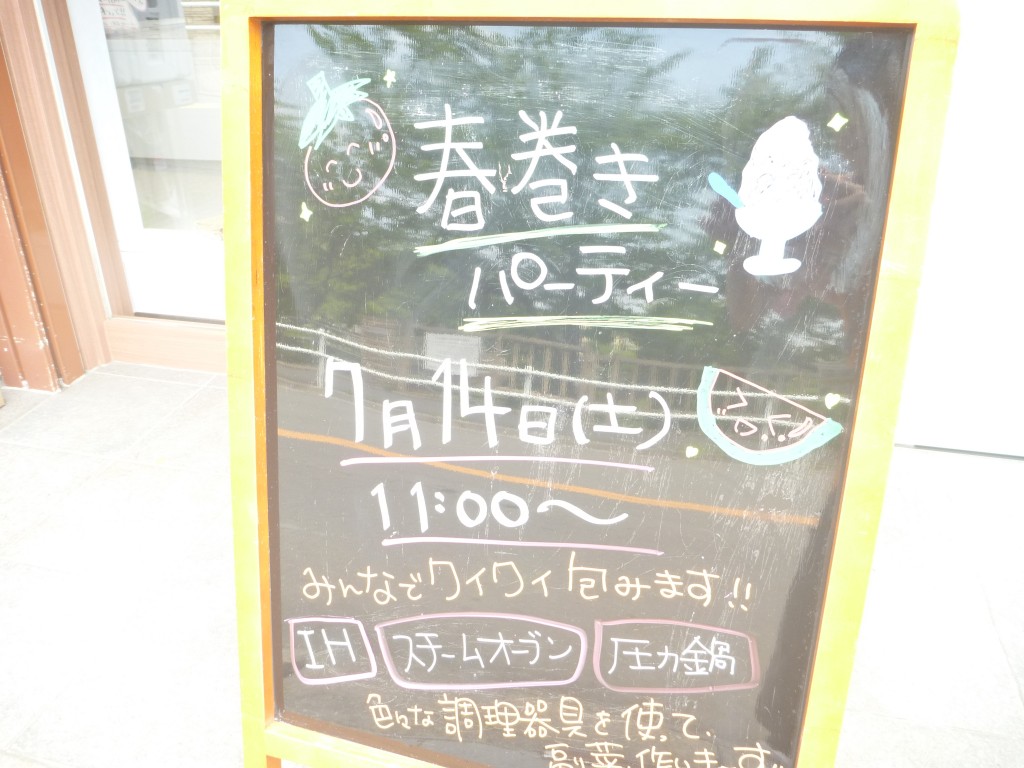 春巻き
パーティー
7月14日(土)
11:00～
みんなでワイワイ包みます!!
IH スチームオーブン 圧力鍋
色々な調理器具を使って、
副菜作ります!!